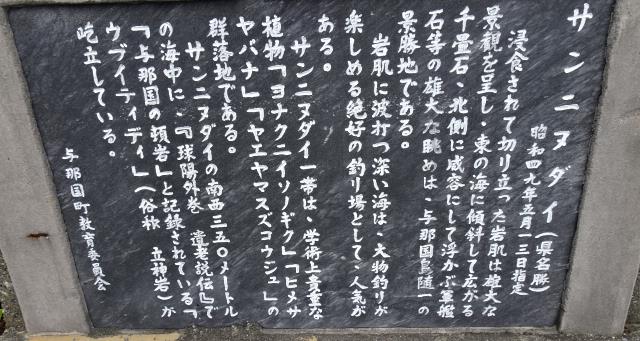 サンニヌダイ（県名勝）
昭和四九年五月一三日指定
浸食されて切り立った岩肌は雄大な
景観を呈し、東の海に傾斜して広がる
千畳石、北側に威容にして浮かぶ軍艦
石等の雄大な眺めは、与那国島随一の
景勝地である。
岩肌に波打つ深い海は、大物釣りが
楽しめる絶好の釣り場として、人気が
ある。
サンニヌダイ一帯は、学術上貴重な
植物「ヨナクニイソノギク」「ヒメサ
ヤバナ」「ヤエヤマスズコウジュ」の
群落地である。
サンニヌダイの南西三五〇メートル
の海中に、『球陽外巻 遺老説伝』で
『与那国の頓岩』と記録されている「
ウブイティディ」（俗称 立神岩）が
屹立している。
与那国町教育委員会